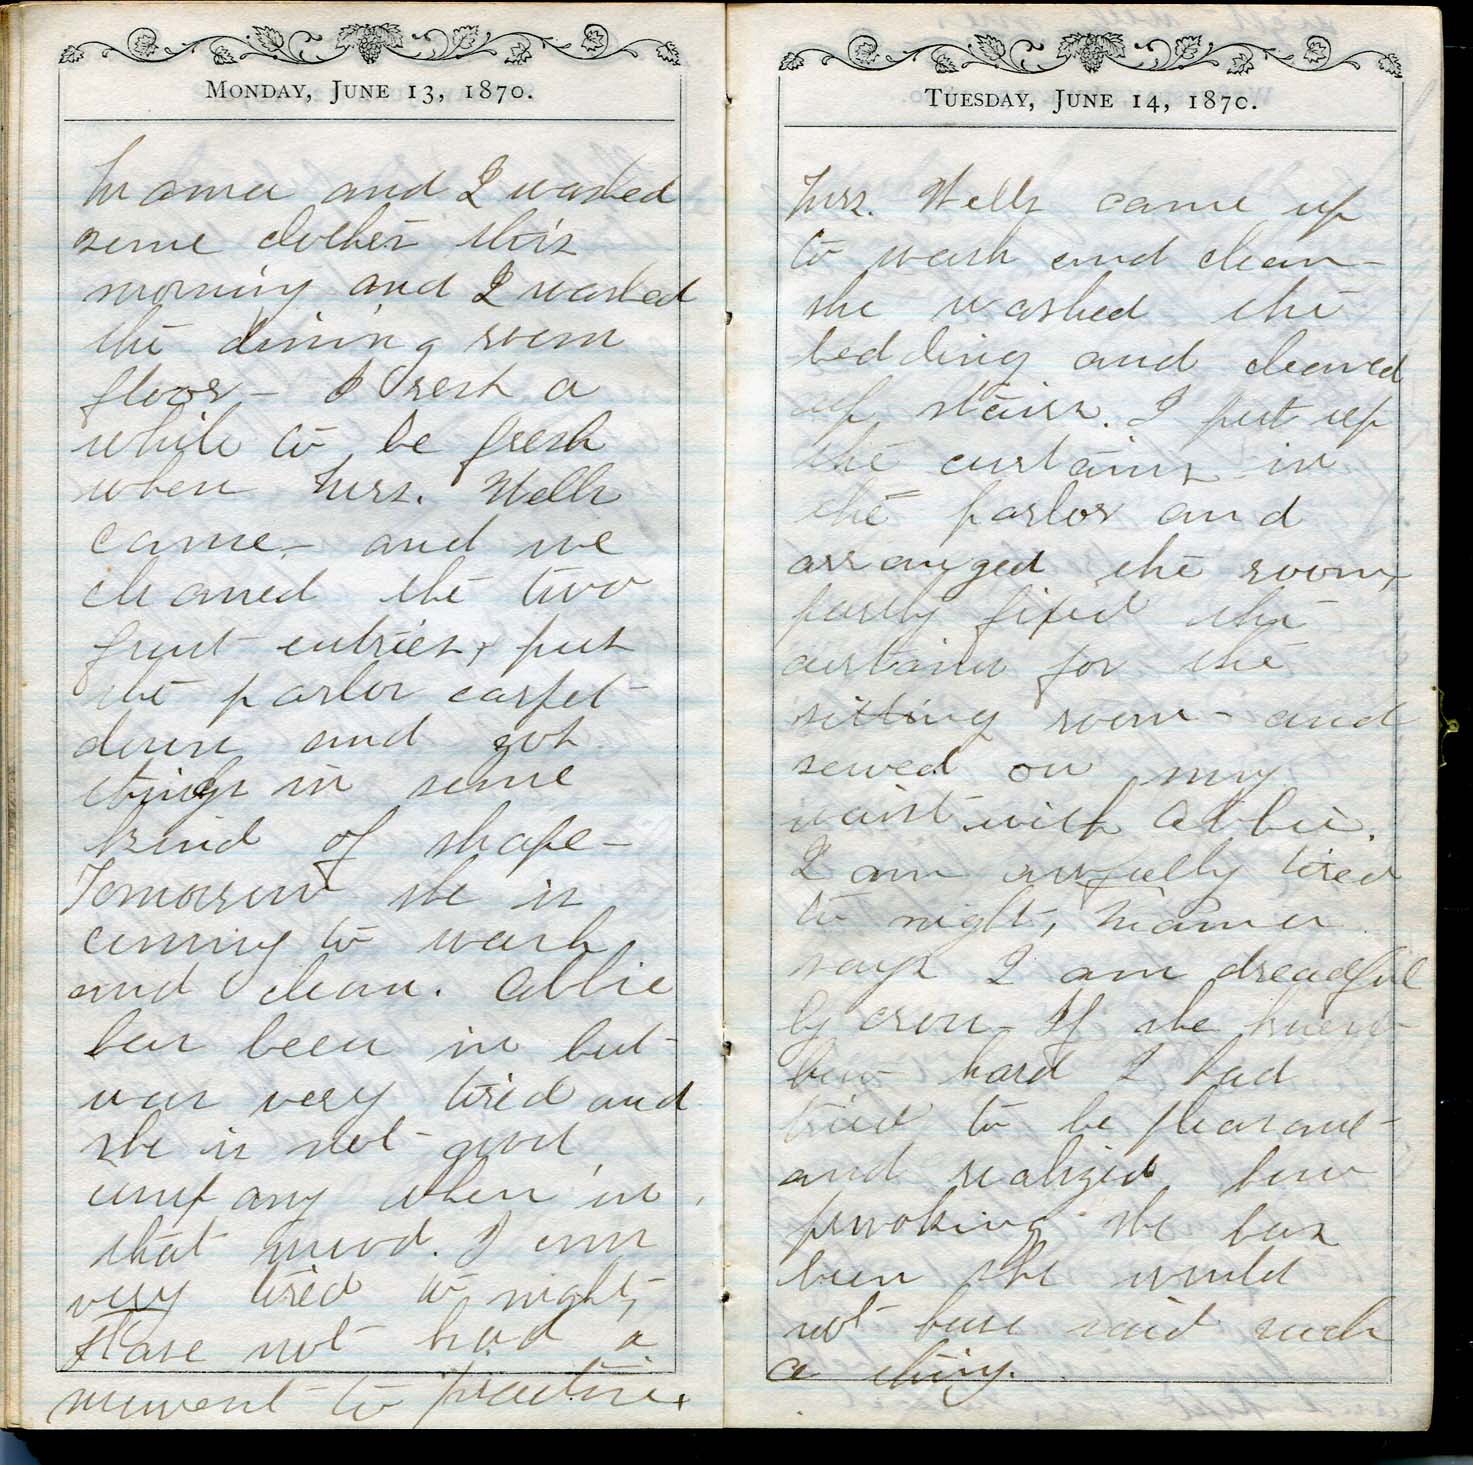 Monday, June 13, 1870.
Mama and I washed
some clothes this
morning and I washed
the dining room
floor - I rest a
while to be fresh
when Mrs. Wells
came - and we
cleaned the two
front entries, put
the parlor carpet
down and got
things in some
kind of shape -
Tomorrow she is
coming to wash
and clean. Abbie
has been in but
was very tired and
she is not good
company when in
that mood. I am
very tired to night,
Have not had a
moment to practice.
Tuesday, June 14, 1870.
Mrs. Wells came up
to wash and clean -
she washed the
bedding and cleaned
up stairs. I put up
the curtains in
the parlor and
arranged the room,
partly fixed the
curtains for the
sitting room - and
sewed on my
waist with Abbie.
I am awfully tired
to night, Mama
says I am dreadful
ly cross - If she knew
how hard I had
tried to be pleasant -
and realized how
provoking she has
been she would
not have said such
a thing.